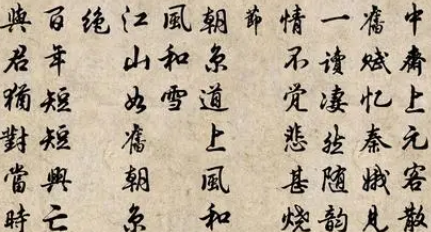 中齋上元客散
舊賦忆秦娥見
一讀凄然随韵
情不觉悲甚烧
節
朝京道上風和
風和雪
江山如舊朝京
绝
百年短短興亡
與君猶對當時